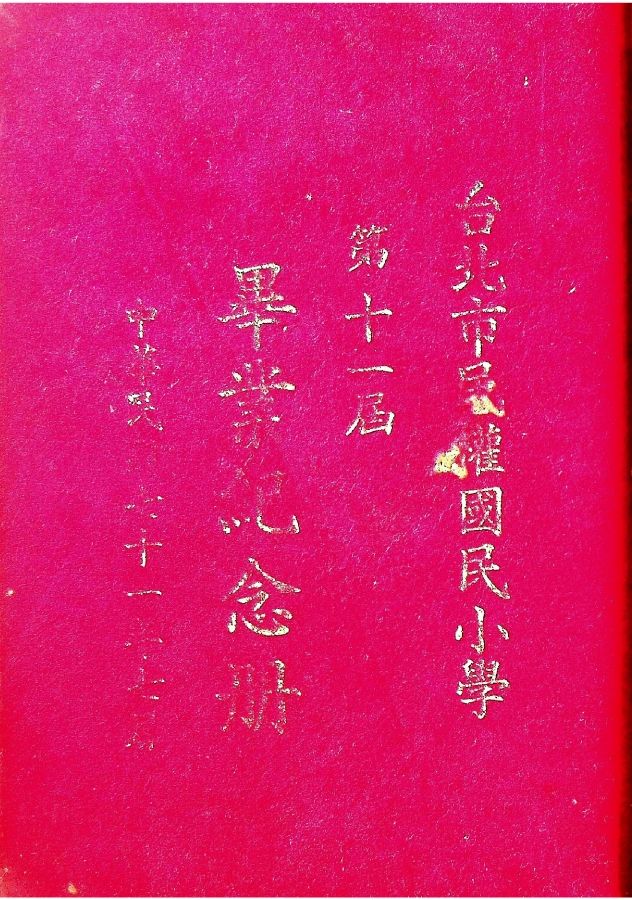 台北市民權國民小學
第十一屆
畢業紀念册
中華民國七十一年七月